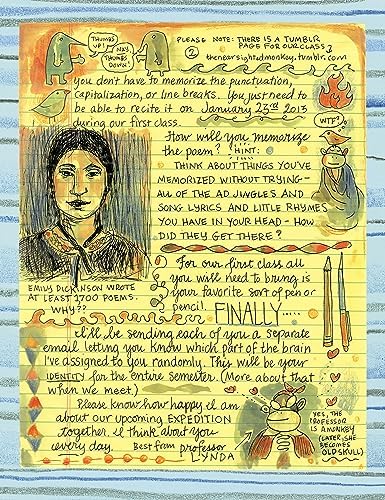 THUMBS UP!
NAY, THUMBS DOWN!
PLEASE NOTE: THERE IS A TUMBLR
PAGE FOR OUR CLASS
2
thenearsightedmonkey.tumblr.com
you don't have to memorize the punctuation,
capitalization, or line breaks. You just need to
be able to recite it on January 23rd 2013
during our first class.
WTF?
How will you memorize
the poem? HINT:
THINK ABOUT THINGS YOU'VE
MEMORIZED WITHOUT TRYING—
ALL OF THE AD JINGLES AND
SONG LYRICS AND LITTLE RHYMES
YOU HAVE IN YOUR HEAD - HOW
DID THEY GET THERE?
EMILY DICKINSON WROTE
AT LEAST 1700 POEMS.
WHY??
For our first class all
you will need to bring is
your favorite sort of pen or
pencil. FINALLY.....
I'll be sending each of you a separate
email letting you know which part of the brain
I've assigned to you randomly. This will be your
IDENTITY for the entire semester. (More about that
when we meet.)
Please know how happy I am
about our upcoming EXPEDITION
together. I think about you
every day. Best from professor
LYNDA
YES, THE
PROFESSOR
IS A MONKEY
(LATER SHE
BECOMES
OLD SKULL)